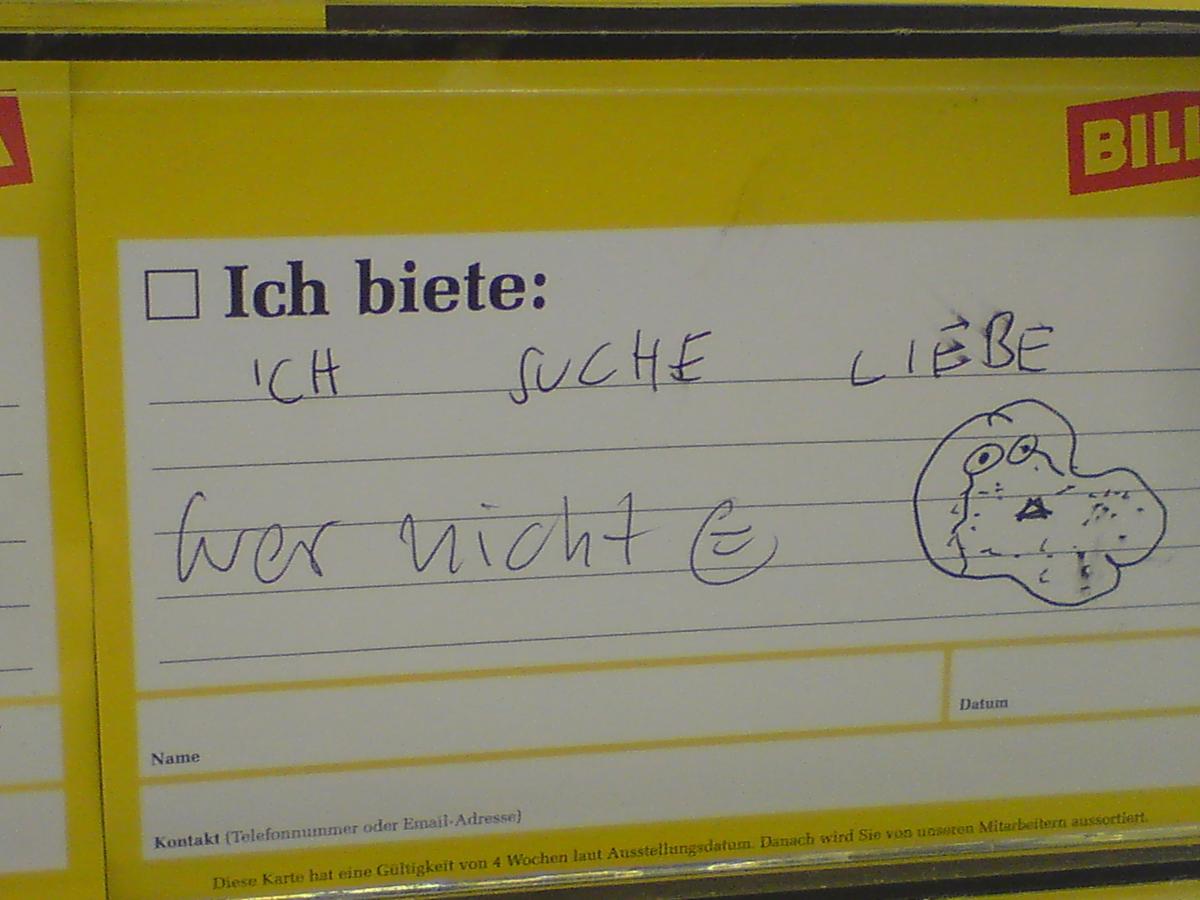 BILL
Ich biete:
ICH SUCHE LIEBE
Wer nicht
Name
Datum
Kontakt (Telefonnummer oder Email-Adresse)
Diese Karte hat eine Gültigkeit von 4 Wochen laut Ausstellungsdatum. Danach wird Sie von unseren Mitarbeitern aussortiert.